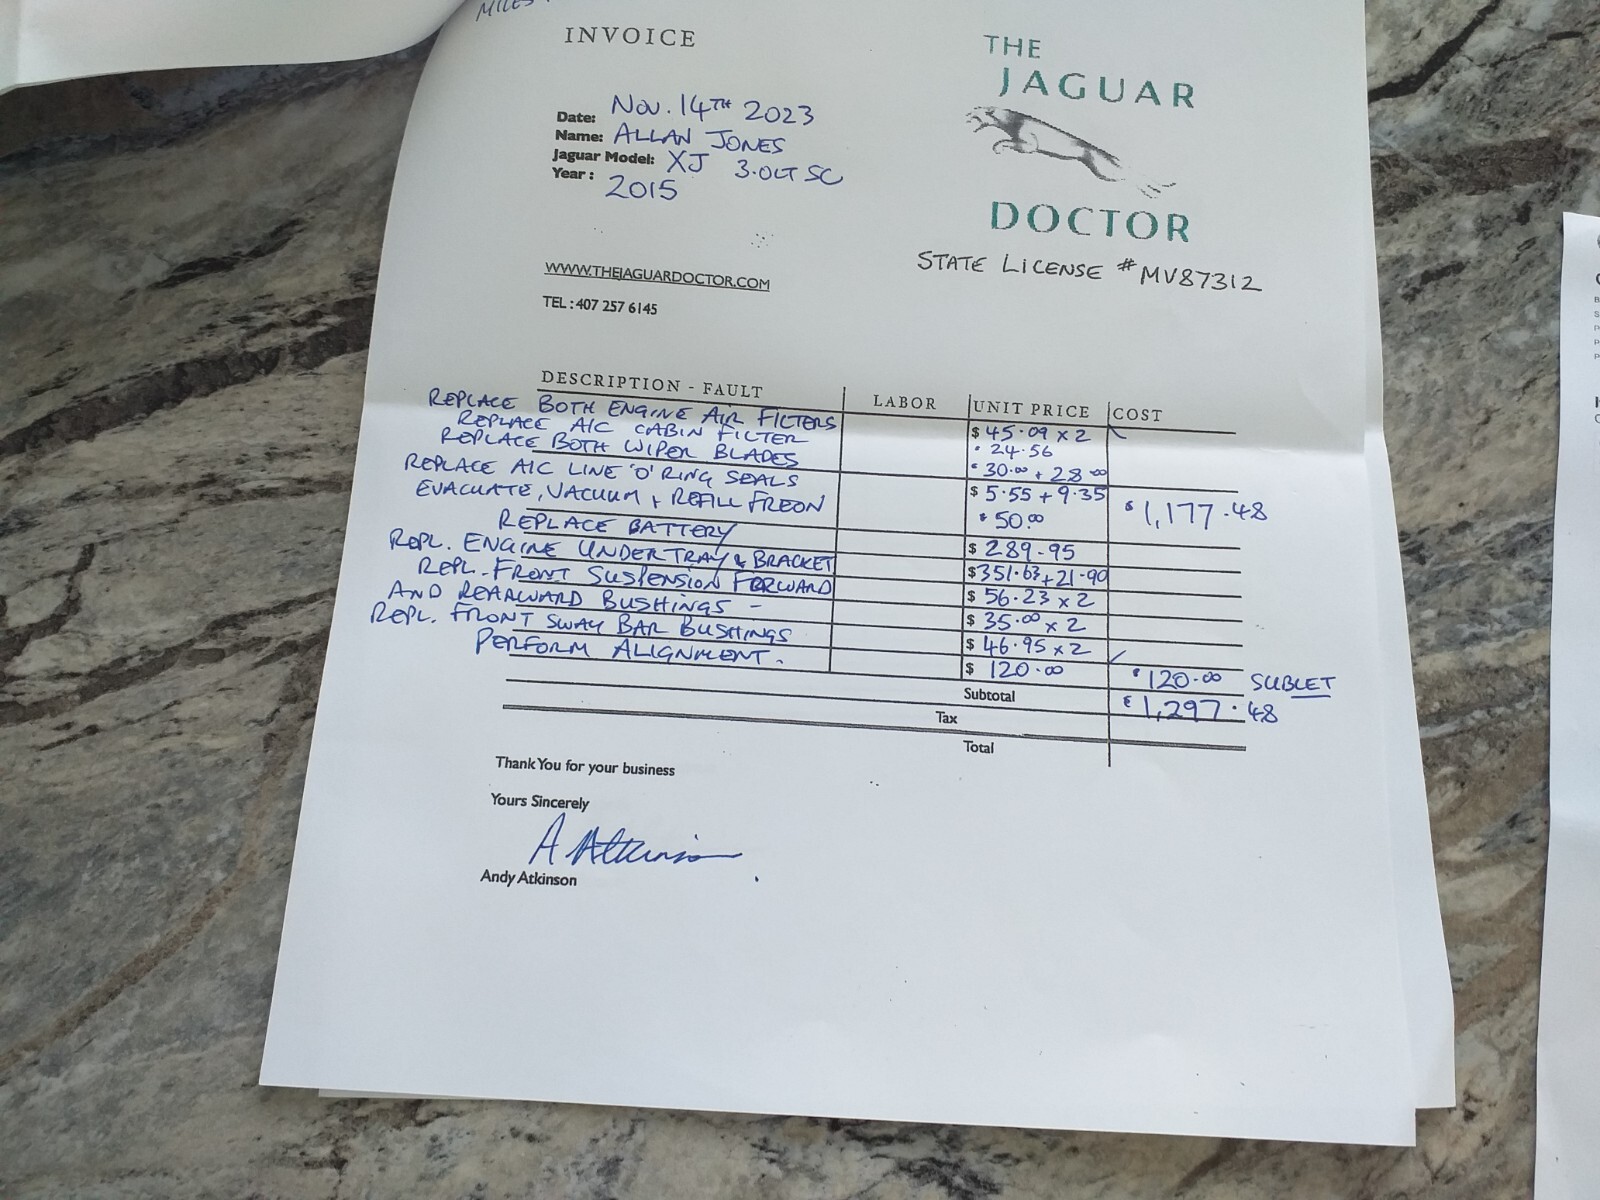 MILES
INVOICE
Date: Nov. 14TH 2023
Name: ALLAN JONES
Jaguar Model: XJ 3.0LT SC
Year: 2015
THE
JAGUAR
DOCTOR
STATE LICENSE #MV87312
WWW.THEJAGUARDOCTOR.COM
TEL : 407 257 6145
DESCRIPTION - FAULT LABOR UNIT PRICE COST
REPLACE BOTH ENGINE AIR FILTERS $45.09 x 2
REPLACE A/C CABIN FILTER 24.56
REPLACE BOTH WIPER BLADES 30.00 + 28.00
REPLACE A/C LINE 'O' RING SEALS $5.55 + 9.35 $1,177.48
EVACUATE, VACUUM + REFILL FREON $50.00
REPLACE BATTERY $289.95
REPL. ENGINE UNDERTRAY & BRACKET $351.63 + 21.90
REPL. FRONT SUSPENSION FORWARD $56.23 x 2
AND REARWARD BUSHINGS - $35.00 x 2
REPL. FRONT SWAY BAR BUSHINGS $46.95 x 2
PERFORM ALIGNMENT. $120.00 $120.00 SUBLET
Subtotal $1,297.48
Tax
Total
Thank You for your business
Yours Sincerely
A Atkinson
Andy Atkinson